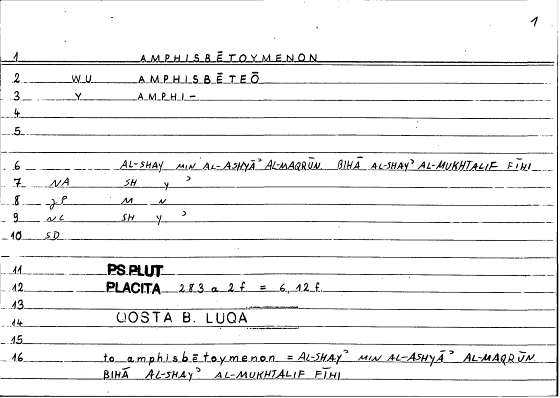 1
1 AMPHISBĒTOYMENON
2 WU AMPHISBĒTEŌ
3 Y AMPHI-
4
5
6 AL-SHAY MIN AL-ASHYĀʾ AL-MAQRŪN BIHĀ AL-SHAYʾ AL-MUKHTALIF FĪHI
7 NA SH Y ʾ
8 JP M N
9 NC SH Y ʾ
10 SD
11 PS.PLUT
12 PLACITA 283 a 2 f = 6,12 f.
13
14 QOSTA B. LUQA
15
16 to amphisbētoymenon = AL-SHAYʾ MIN AL-ASHYĀʾ AL-MAQRŪN
BIHĀ AL-SHAYʾ AL-MUKHTALIF FĪHI